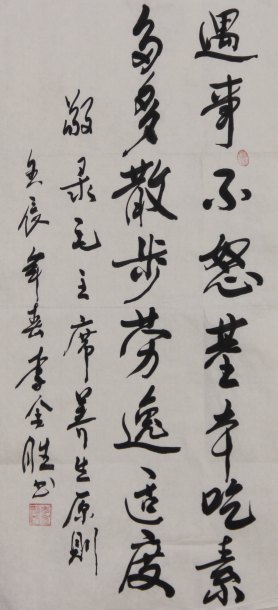 遇事不怒基本吃素
多多散步劳逸适度
敬录毛主席养生原则
壬辰年春李金胜书